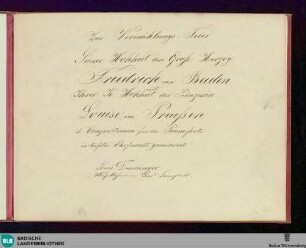 Zur Vermählungs Feier
Seiner Hohheit des Groß Herzog
Friedrich von Baden
Ihrer K. Hohheit der Prinzessin
Louise von Preußen
6 Compositionen für das Pianoforte
in tiefster Ehrfurcht gewidmet
Louis
BLB
BADISCHE
LANDESBIBLIOTHEK